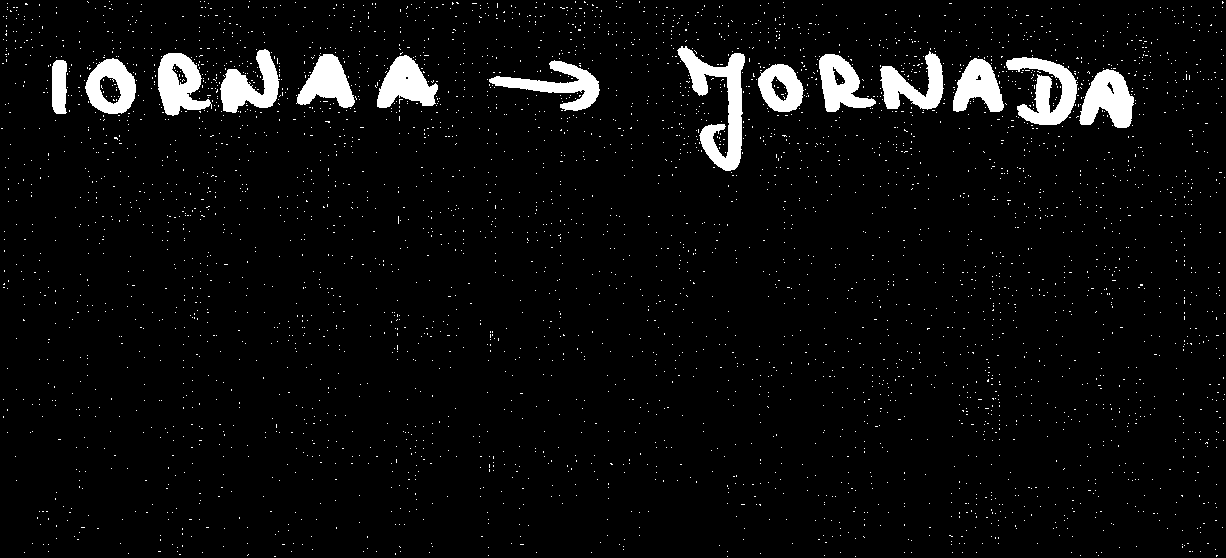 IORNAA → JORNADA